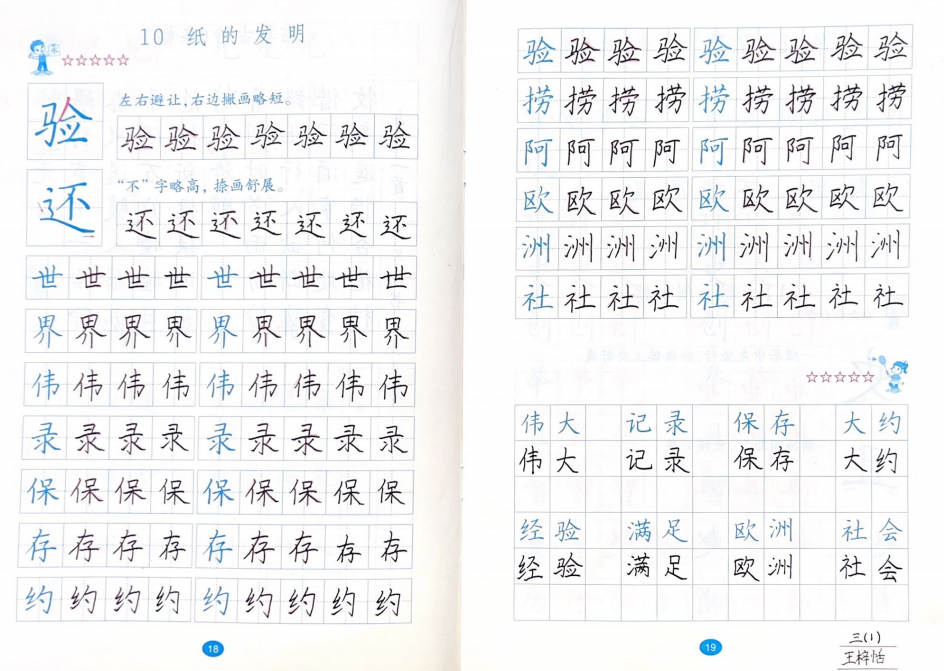 10 纸的发明
验 左右避让，右边撇画略短。
验验验验验验验
还 “不”字略高，捺画舒展。
还还还还还还还
世世世世世世世世世
界界界界界界界界界
伟伟伟伟伟伟伟伟伟
录录录录录录录录录
保保保保保保保保保
存存存存存存存存存
约约约约约约约约约
18
验验验验验验验验验
捞捞捞捞捞捞捞捞捞
阿阿阿阿阿阿阿阿阿
欧欧欧欧欧欧欧欧欧
洲洲洲洲洲洲洲洲洲
社社社社社社社社社
伟大 记录 保存 大约
伟大 记录 保存 大约
经验 满足 欧洲 社会
经验 满足 欧洲 社会
19
三(1)
王梓怡